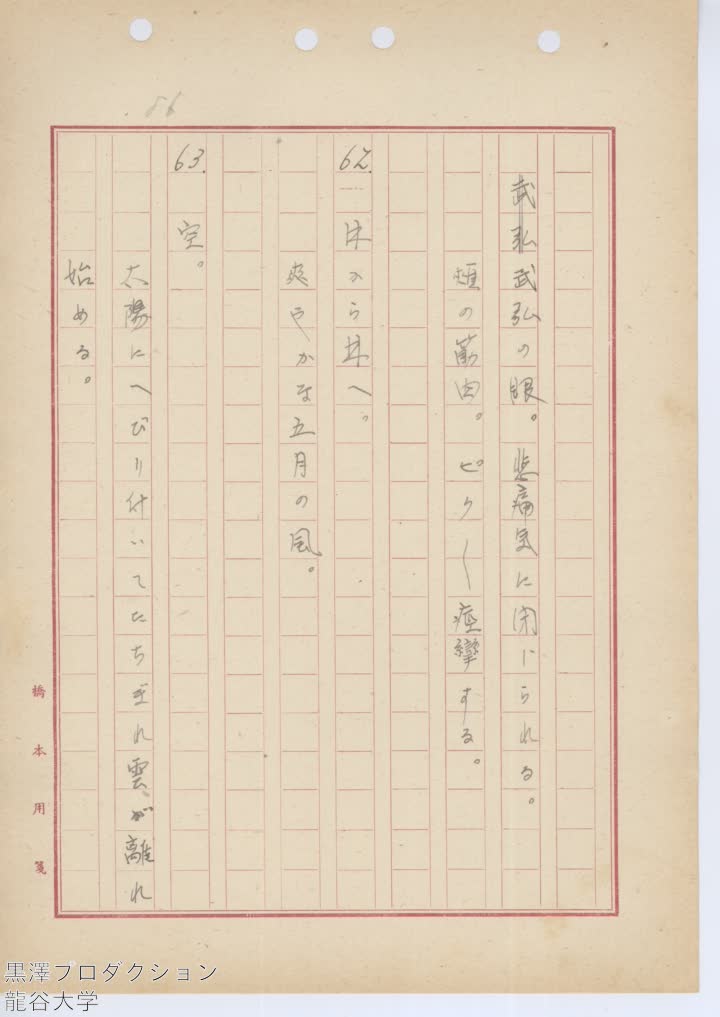 86
武弘武弘の眼。悲痛気に閉じられる。
頬の筋肉。ピク〳〵痙攣する。
62.
林から林へ。
爽やかな五月の風。
63.
空。
太陽にへばり付いてたち
れ雲が離れ
始める。
橋本用箋
黒澤プロダクション
龍谷大学